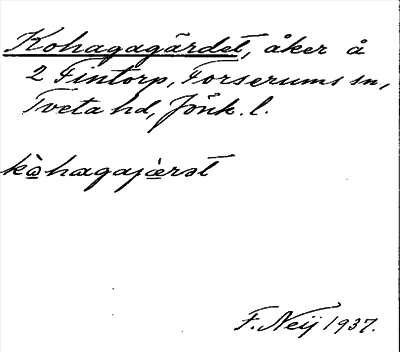 Kohagagärdet, åker å
2 Fintorp, Forserums sn,
Tveta hd, Jönk. l.
kòhagajærat
F. Neij 1937.